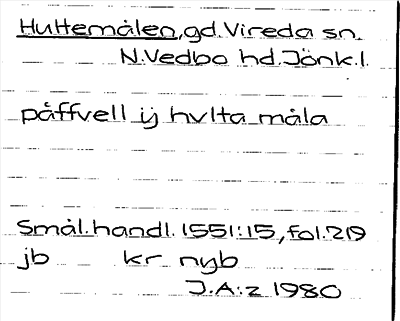 Hultemålen, gd. Vireda sn.
N.Vedbo hd. Jönk.l.
påffvell ij hvlta måla
Smål.handl. 1551:15, fol. 219
jb kr nyb
J.A:z 1980